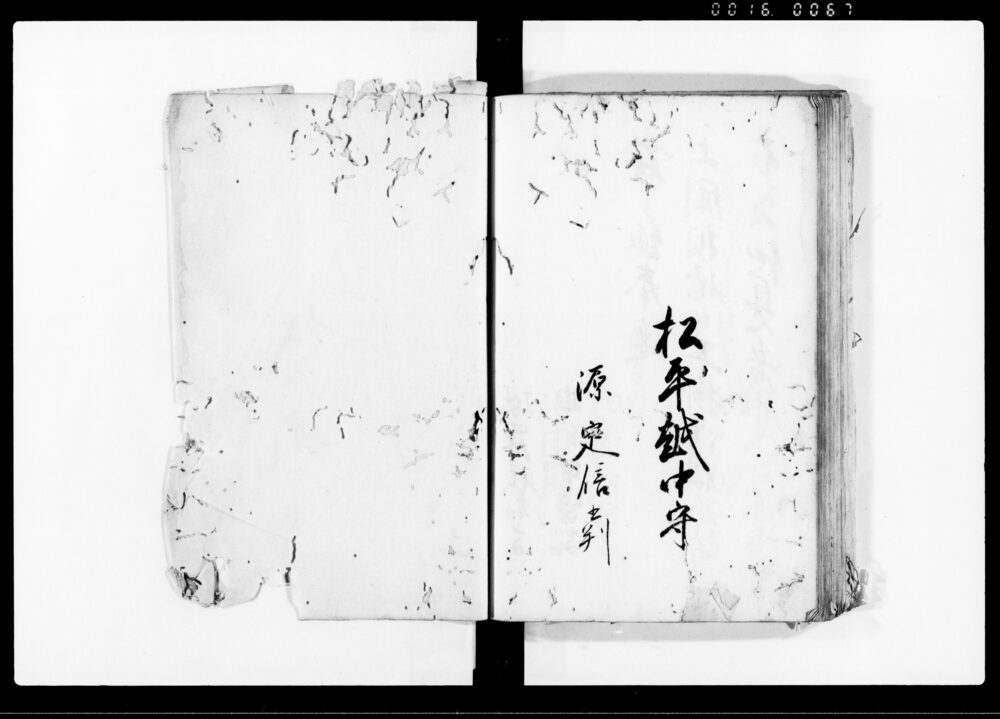 0016 0067
松平越中守
源定信判